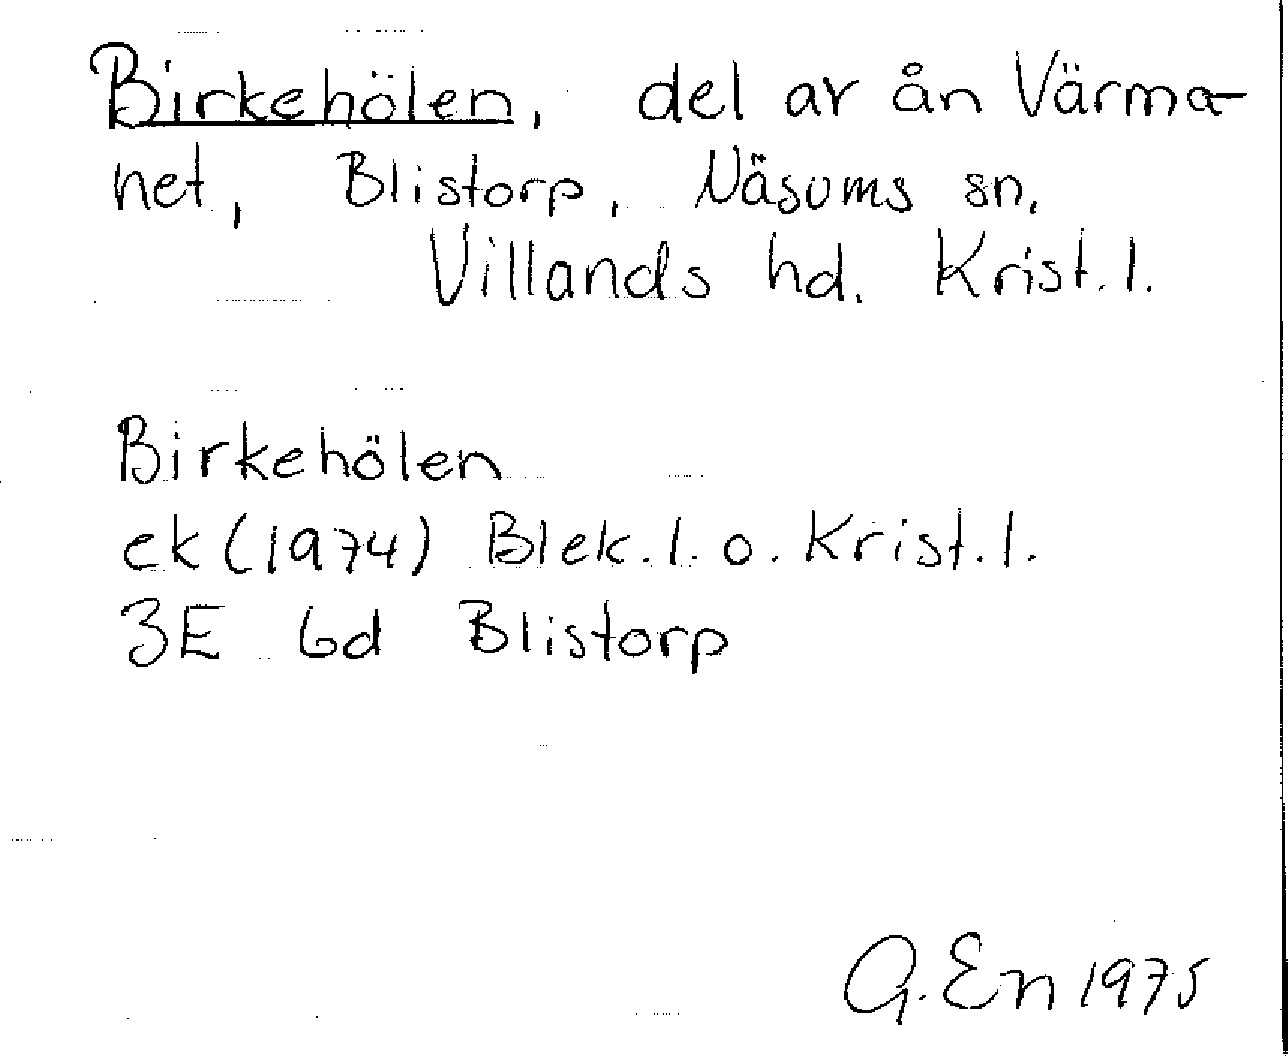 Birkehölen, del av ån Värma-
net, Blistorp, Näsums sn,
Villands hd. Krist. l.
Birkehölen
ek (1974) Blek. l. o. Krist. l.
3E 6d Blistorp
G. En 1975